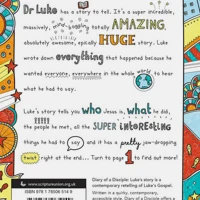 Dr Luke has a story to tell. It's a super incredible,
massively, mind-boggling totally AMAZING,
absolutely awesome, epically HISTORICALLY HUGE story. Luke
wrote down everything that happened because he
wanted everyone, everywhere in the whole world to hear
what he had to say.
Luke's story tells you who Jesus is, what he did,
the people he met, all the SUPER iNteREsting
!!!!!
things he had to say and it has a pretty jaw-dropping
twist right at the end.... Turn to page 1 to find out more!
www.scriptureunion.org.uk
ISBN 978 1 78506 514 9
Diary of a Disciple: Luke's story is a
contemporary retelling of Luke's Gospel.
Written in a quirky, contemporary,
accessible style, Diary of a Disciple offers a